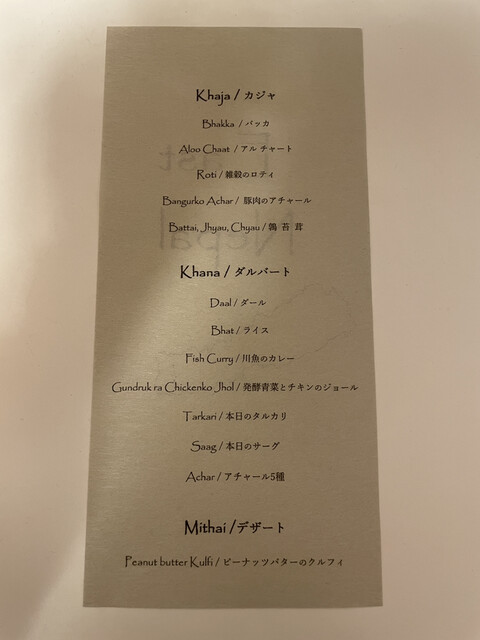 Khaja / カジャ
Bhakka / バッカ
Aloo Chaat / アル チャート
Roti / 雑穀のロティ
Bangurko Achar / 豚肉のアチャール
Battai, Jhyau, Chyau / 鶉 苔 茸
Khana / ダルバート
Daal / ダール
Bhat / ライス
Fish Curry / 川魚のカレー
Gundruk ra Chickenko Jhol / 発酵青菜とチキンのジョール
Tarkari / 本日のタルカリ
Saag / 本日のサーグ
Achar / アチャール5種
Mithai / デザート
Peanut butter Kulfi / ピーナッツバターのクルフィ